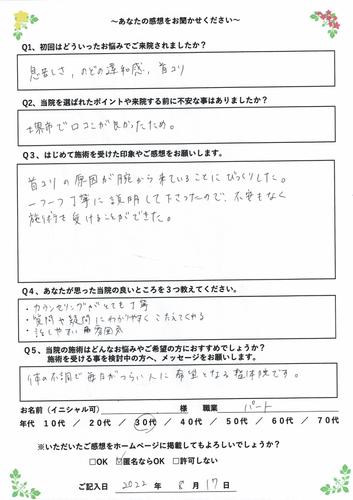 ～あなたの感想をお聞かせください～
Q1、初回はどういったお悩みでご来院されましたか？
息苦しさ，のどの違和感，首コリ
Q2、当院を選ばれたポイントや来院する前に不安な事はありましたか？
堺市で口コミが良かったため。
Q3、はじめて施術を受けた印象やご感想をお願いします。
首コリの原因が腕から来ていることにびっくりした。
一つ一つ丁寧に説明して下さったので、不安もなく
施術を受けることができた。
Q4、あなたが思った当院の良いところを３つ教えてください。
・カウンセリングがとても丁寧
・質問や疑問にわかりやすくこたえてくれる
・話しやすい雰囲気
Q5、当院の施術はどんなお悩みやご希望の方におすすめでしょうか？
施術を受ける事を検討中の方へ、メッセージをお願いします。
体の不調で毎日がつらい人に希望となる整体院です。
お名前（イニシャル可） 様 職業 パート
年代 10代 ／ 20代 ／ 30代 ／ 40代 ／ 50代 ／ 60代 ／ 70代
※いただいたご感想をホームページに掲載してもよろしいでしょうか？
□OK ☑匿名ならOK □許可しない
ご記入日 2022 年 8 月 17 日